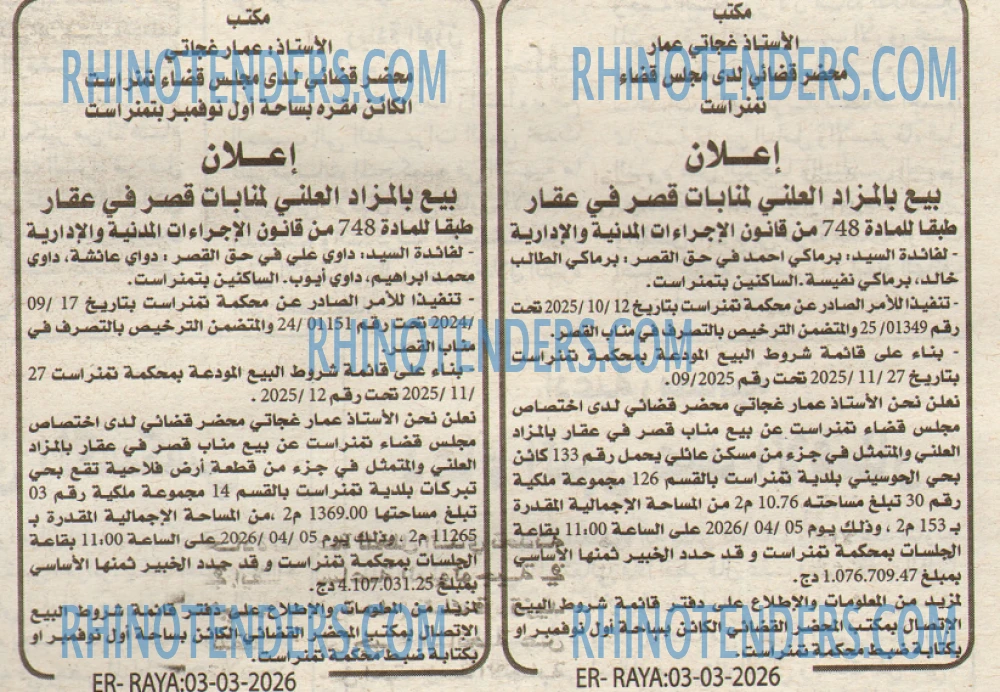 مكتب
الأستاذ غجاتي عمار
محضر قضائي لدى مجلس قضاء
تمنراست
إعــلان
بيع بالمزاد العلني لمنابات قصر في عقار
طبقا للمادة 748 من قانون الإجراءات المدنية والإدارية
- لفائدة السيد: برماكي احمد في حق القصر : برماكي الطالب
خالد، برماكي نفيسة. الساكنين بتمنراست.
- تنفيذا للأمر الصادر عن محكمة تمنراست بتاريخ 12/ 10/ 2025 تحت
رقم 01349/ 25 والمتضمن الترخيص بالتصرف في مناب القصر.
- بناء على قائمة شروط البيع المودعة بمحكمة تمنراست
بتاريخ 27/ 11/ 2025 تحت رقم 09/2025.
نعلن نحن الأستاذ عمار غجاتي محضر قضائي لدى اختصاص
مجلس قضاء تمنراست عن بيع مناب قصر في عقار بالمزاد
العلني والمتمثل في جزء من مسكن عائلي يحمل رقم 133 كائن
بحي الحوسيني بلدية تمنراست بالقسم 126 مجموعة ملكية
رقم 30 تبلغ مساحته 10.76 م2 من المساحة الإجمالية المقدرة
بـ 153 م2 ، وذلك يوم 05/ 04/ 2026 على الساعة 11:00 بقاعة
الجلسات بمحكمة تمنراست و قد حدد الخبير ثمنها الأساسي
بمبلغ 1.076.709.47 دج.
لمزيد من المعلومات والإطلاع على دفتر قائمة شروط البيع
الإتصال بمكتب المحضر القضائي الكائن بساحة أول نوفمبر او
بكتابة ضبط محكمة تمنراست.
ER- RAYA:03-03-2026
مكتب
الأستاذ: عمار غجاتي
محضر قضائي لدى مجلس قضاء تمنراست
الكائن مقره بساحة أول نوفمبر بتمنراست
إعــلان
بيع بالمزاد العلني لمنابات قصر في عقار
طبقا للمادة 748 من قانون الإجراءات المدنية والإدارية
- لفائدة السيد: داوي علي في حق القصر : دواي عائشة، داوي
محمد ابراهيم، داوي أيوب. الساكنين بتمنراست.
- تنفيذا للأمر الصادر عن محكمة تمنراست بتاريخ 17 /09
/2024 تحت رقم 01151/ 24 والمتضمن الترخيص بالتصرف في
مناب القصر.
- بناء على قائمة شروط البيع المودعة بمحكمة تمنراست 27
/11/ 2025 تحت رقم 12/ 2025 .
نعلن نحن الأستاذ عمار غجاتي محضر قضائي لدى اختصاص
مجلس قضاء تمنراست عن بيع مناب قصر في عقار بالمزاد
العلني والمتمثل في جزء من قطعة أرض فلاحية تقع بحي
تبركات بلدية تمنراست بالقسم 14 مجموعة ملكية رقم 03
تبلغ مساحتها 1369.00 م2 ،من المساحة الإجمالية المقدرة بـ
11265 م2 ، وذلك يوم 05/ 04/ 2026 على الساعة 11:00 بقاعة
الجلسات بمحكمة تمنراست و قد حدد الخبير ثمنها الأساسي
بمبلغ 4.107.031.25 دج.
لمزيد من المعلومات والإطلاع على دفتر قائمة شروط البيع
الإتصال بمكتب المحضر القضائي الكائن بساحة أول نوفمبر او
بكتابة ضبط محكمة تمنراست.
ER- RAYA:03-03-2026
RHINOTENDERS.COM
RHINOTENDERS.COM
RHINOTENDERS.COM
RHINOTENDERS.COM
RHINOTENDERS.COM